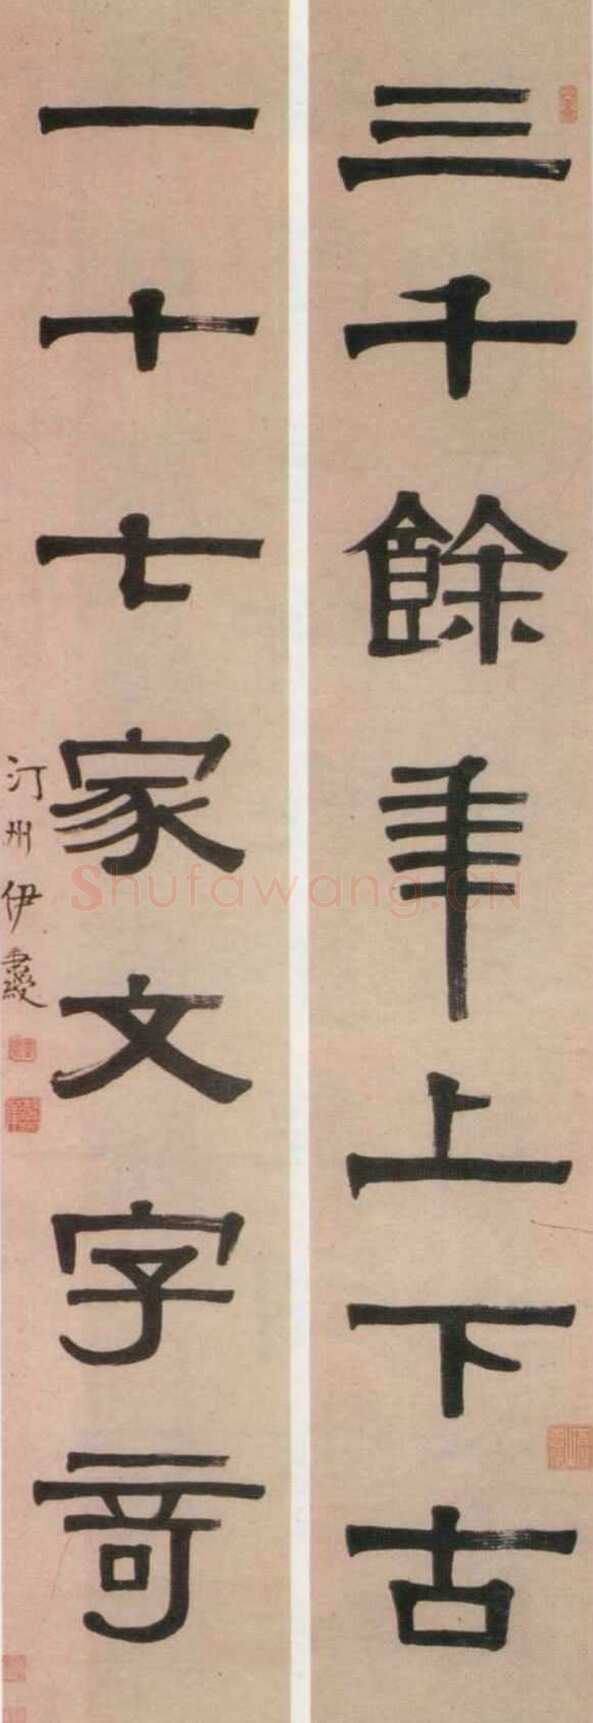 三千餘年上下古
一十七家文字竒
汀州伊秉綬
Shufawang.CN